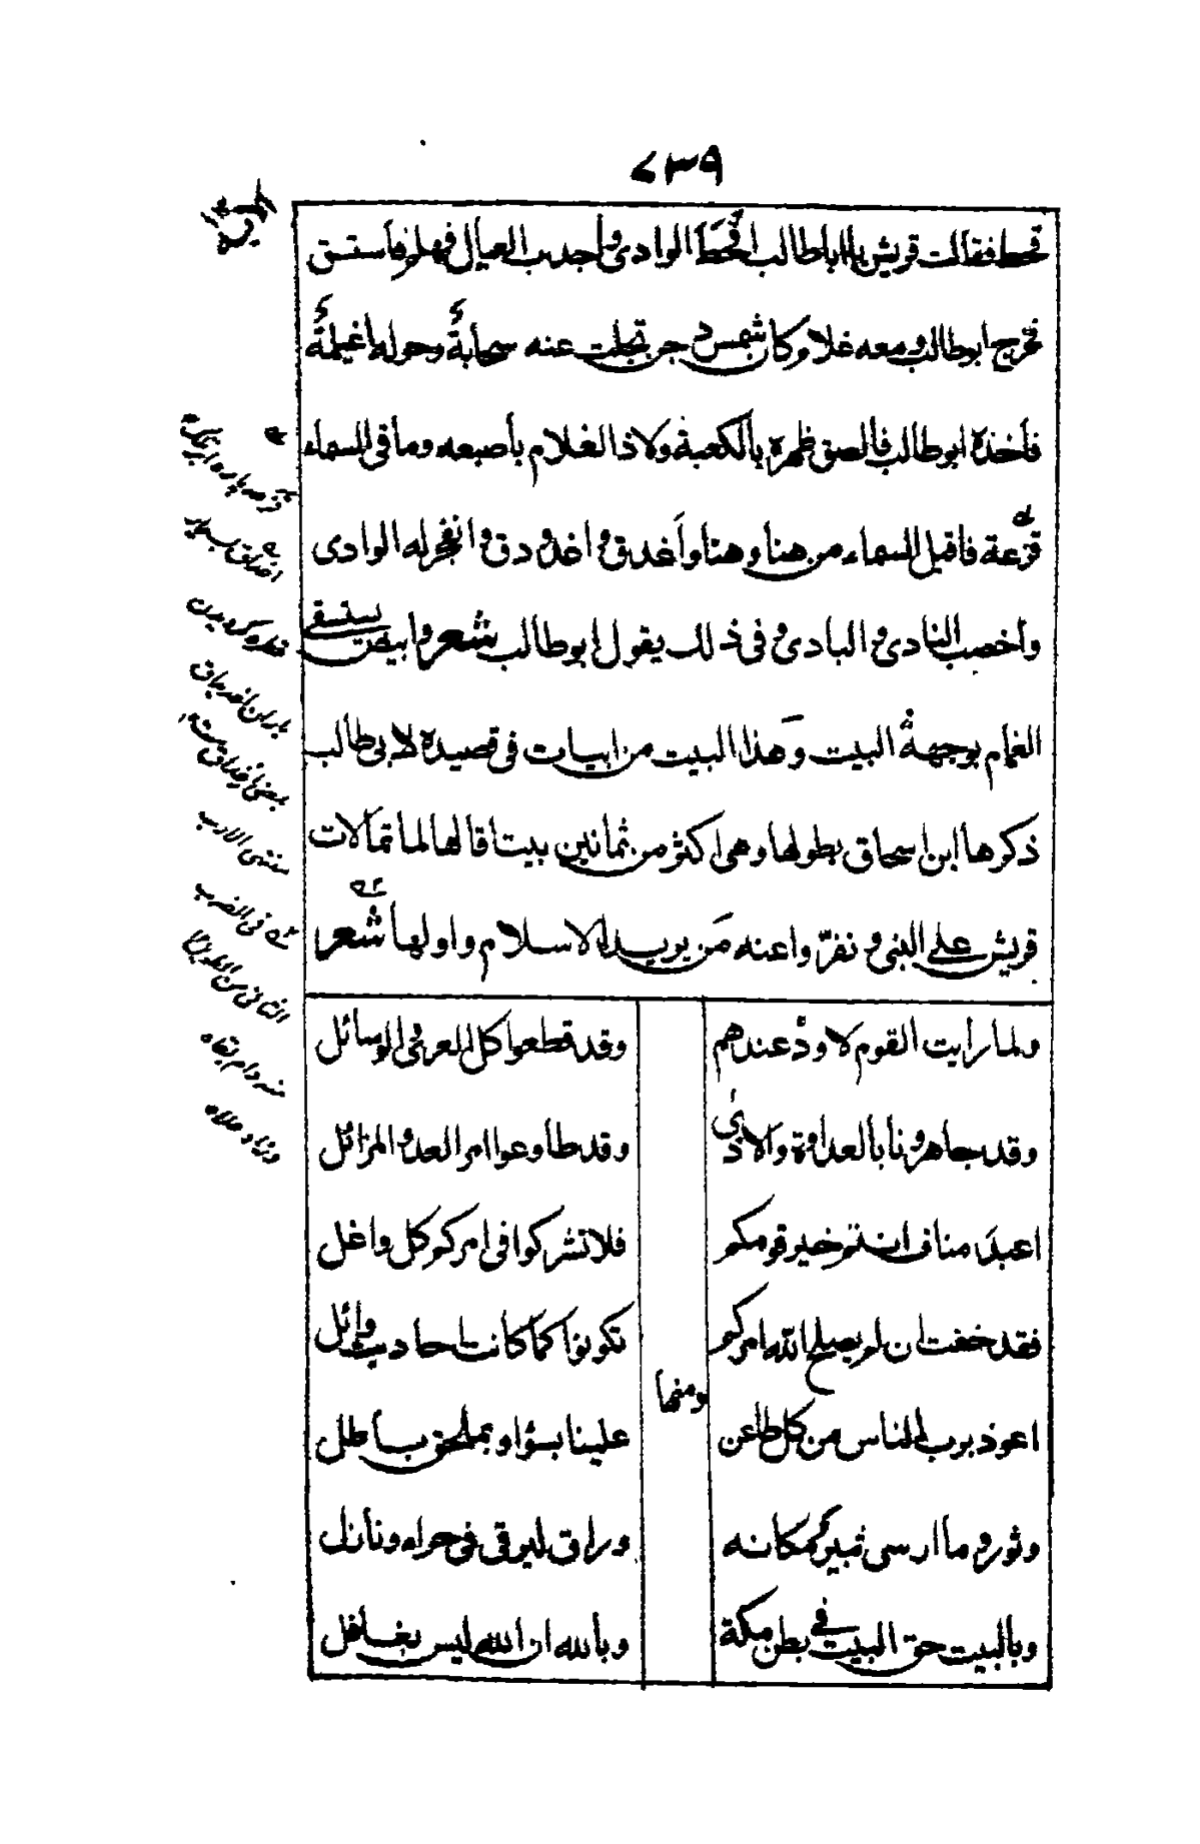 ۷۳۹
قحط فقالت قريش يا ابا طالب اقحط الوادى واجدب العيال فهلم فاستسق
فخرج ابوطالب ومعه غلام كان شمس دجن تجلت عنه سحابة وحوله اغيلمة
فأخذه ابوطالب فألصق ظهره بالكعبة ولاذ الغلام بأصبعه وما فى السماء
قزعة فاقبل السماء من هنا وهنا وأغدق واغدودق وانفجر له الوادى
وأخصب النادى والبادى وفى ذلك يقول ابوطالب شعر وابيض يستسقى
الغمام بوجهه البيت وهذا البيت من ابيات فى قصيدة لابى طالب
ذكرها ابن اسحاق بطولها وهى اكثر من ثمانين بيتا قالها لما تمالأت
قريش على النبى ونفروا عنه من يريد الاسلام واولها شعر
ولما رأيت القوم لا ود عندهم وقد قطعوا كل العرى والوسائل
وقد جاهرونا بالعداوة والاذى وقد طاوعوا امر العدو المزائل
اعبد مناف انتم خير قومكم فلا تشركوا فى امركم كل واغل
فقد خفت ان لم يصلح الله امركم تكونوا كما كانت احاديث وائل
ومنها
اعوذ برب الناس من كل طاعن علينا بسؤ او بملحق باطل
وثور وما ارسى ثبير مكانه وراق ليرقى فى حراء ونازل
وبالبيت حق البيت فى بطن مكة وبالله ان الله ليس بغافل
قزعه پاره ابر
باران
منتهى الارب
فى الضرب
الثانى من الطويل
منه دام بقاه
وزاد علاه